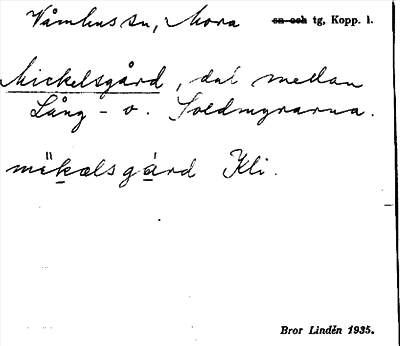 Våmhus sn, Mora sn och tg, Kopp. l.
Mickelsgård, dal mellan
Lång- o. Soldmyrarna.
mökælsgård Kli.
Bror Lindén 1935.